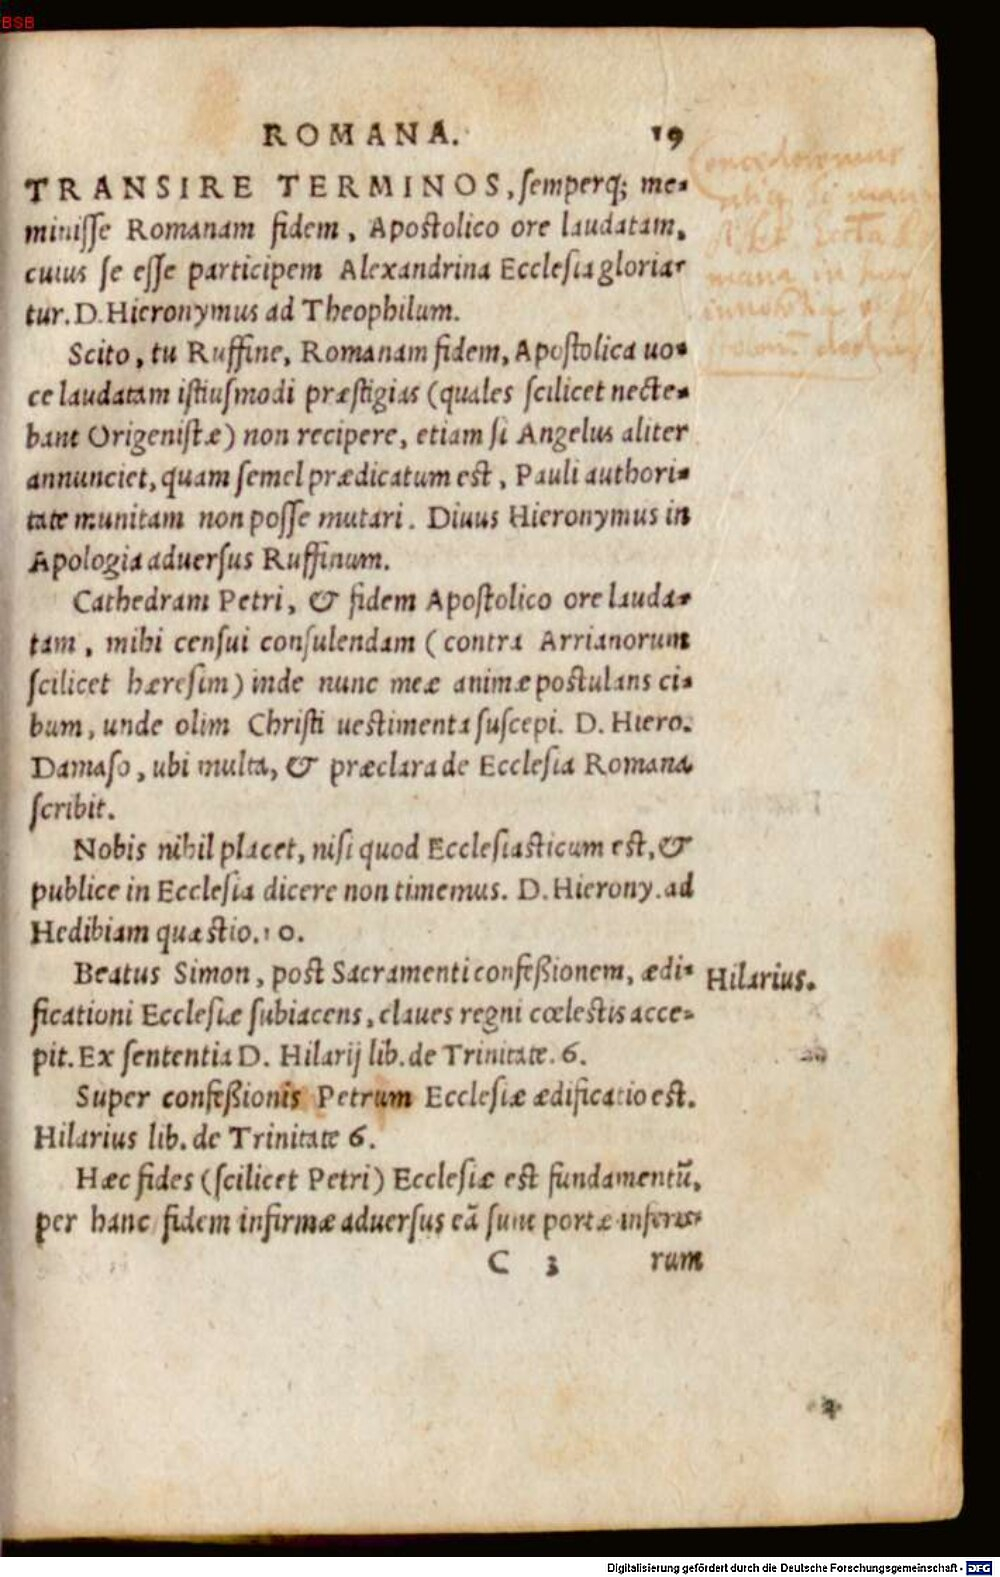 BSB
ROMANA. 19
TRANSIRE TERMINOS, semperq; me-
minisse Romanam fidem, Apostolico ore laudatam,
cuius se esse participem Alexandrina Ecclesia gloria-
tur. D. Hieronymus ad Theophilum.
Scito, tu Ruffine, Romanam fidem, Apostolica uo-
ce laudatam istiusmodi præstigias (quales scilicet necte-
bant Origenistæ) non recipere, etiam si Angelus aliter
annunciet, quam semel prædicatum est, Pauli authori-
tate munitam non posse mutari. Diuus Hieronymus in
Apologia aduersus Ruffinum.
Cathedram Petri, & fidem Apostolico ore lauda-
tam, mihi censui consulendam (contra Arrianorum
scilicet hæresim) inde nunc meæ animæ postulans ci-
bum, unde olim Christi uestimenta suscepi. D. Hiero.
Damaso, ubi multa, & præclara de Ecclesia Romana
scribit.
Nobis nihil placet, nisi quod Ecclesiasticum est, &
publice in Ecclesia dicere non timemus. D. Hierony. ad
Hedibiam quæstio. 10.
Beatus Simon, post Sacramenti confeßionem, ædi-
Hilarius.
ficationi Ecclesiæ subiacens, claues regni cœlestis acce-
pit. Ex sententia D. Hilarij lib. de Trinitate. 6.
Super confeßionis Petrum Ecclesiæ ædificatio est.
Hilarius lib. de Trinitate 6.
Hæc fides (scilicet Petri) Ecclesiæ est fundamentũ,
per hanc fidem infirmæ aduersus eã sunt portæ infero-
C 3 rum
Digitalisierung gefördert durch die Deutsche Forschungsgemeinschaft - DFG